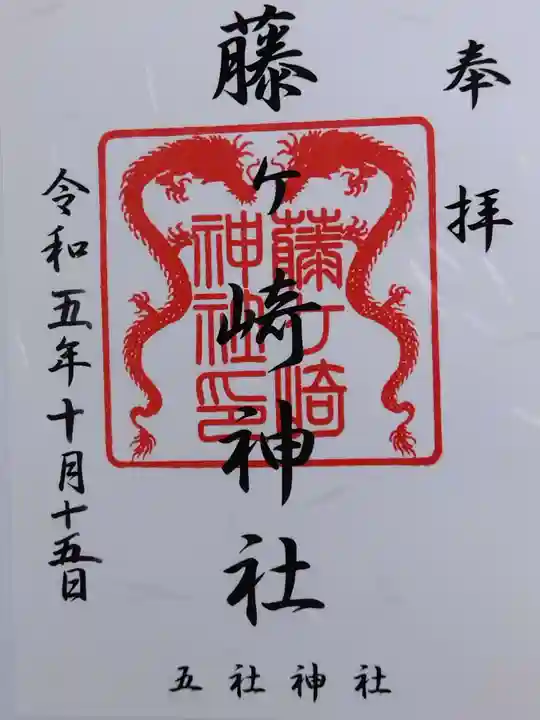 奉拝
藤ヶ崎神社
藤ヶ崎
神社印
令和五年十月十五日
五社神社